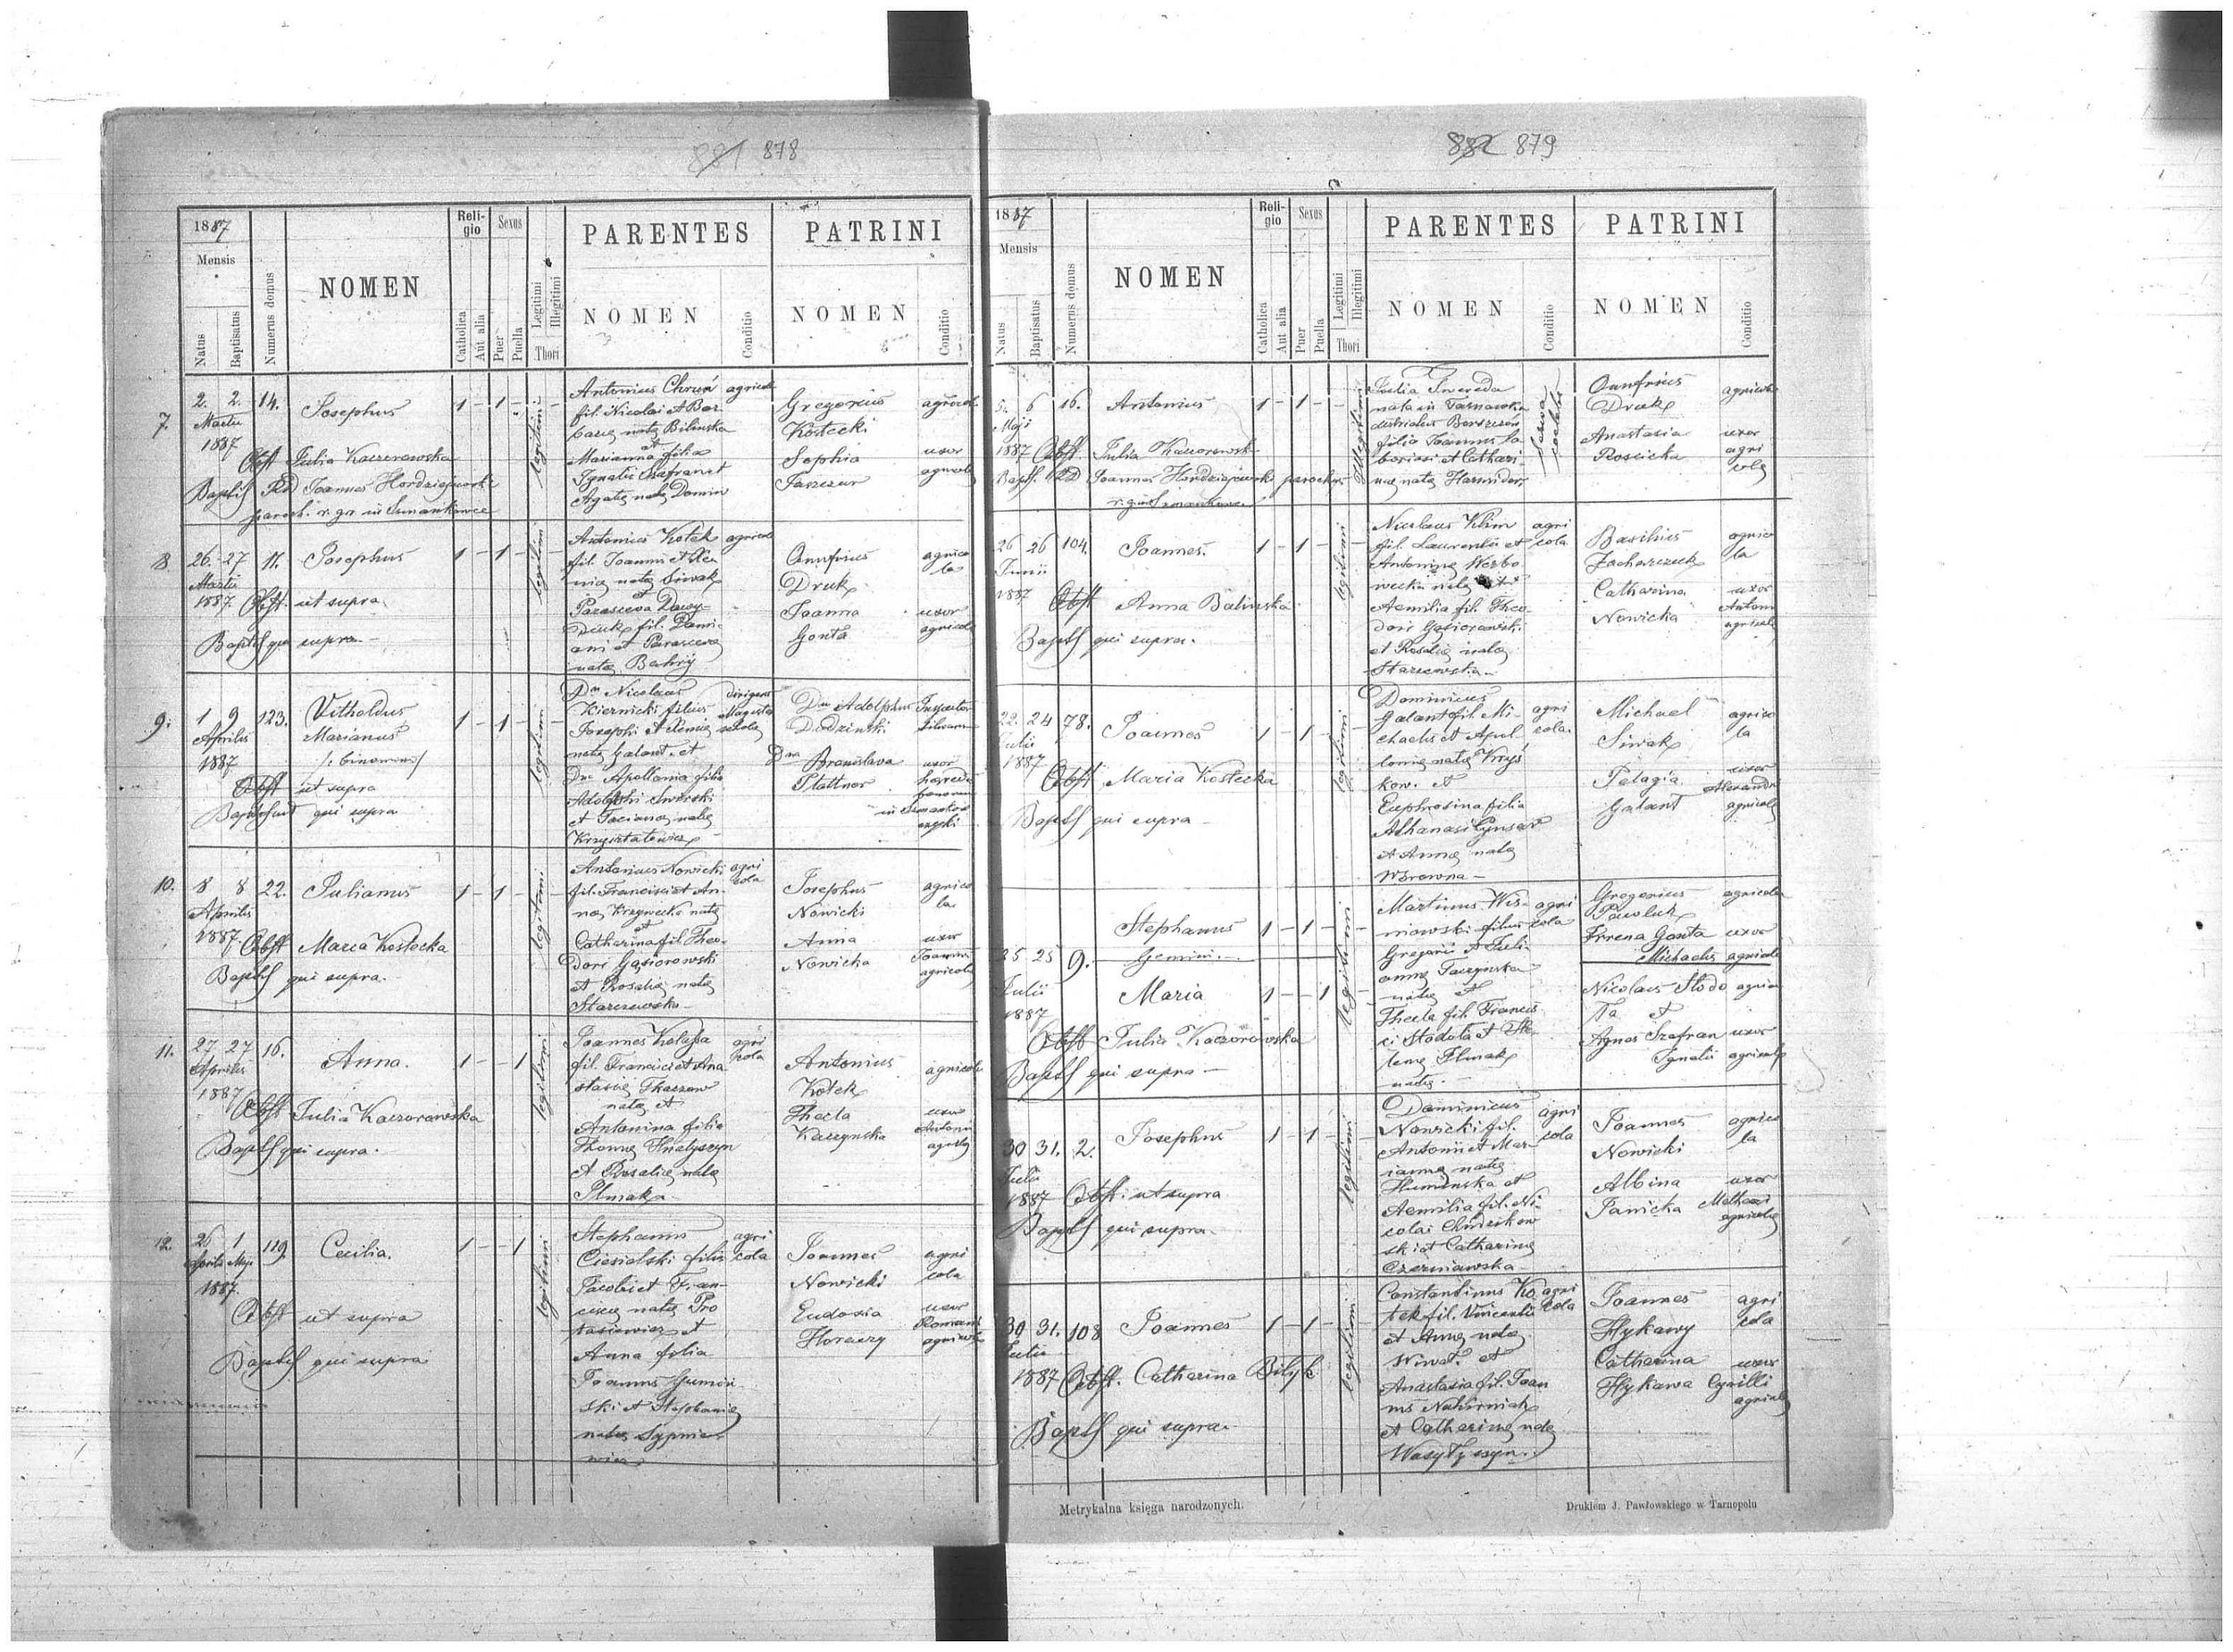 881 878
1887
Mensis
Natus
Baptisatus
Numerus domus
NOMEN
Religio
Catholica
Aut alia
Sexus
Puer
Puella
Legitimi
Illegitimi
Thori
PARENTES
NOMEN
Conditio
PATRINI
NOMEN
Conditio
7.
2. 2. 14.
Martii
1887
Josephus
1 - 1 -
legitimi
Obst Julia Kaczorowska
Bapts RD Joannes Hordziejewski
paroch. r. gr. in
Antonius Chruń agricola
fil. Nicolai et Bar
barae natae Bilinska
et
Marianna filia
Ignatii Szafran et
Agatae natae Domin
Gregorius agricola
Kostecki
Sophia uxor
Jaszczur agricolae
8
26. 27 11.
Martii
1887.
Josephus
1 - 1 -
legitimi
Obst. ut supra
Bapts qui supra.
Antonius Kotek agricola
fil. Joannis et Xe
niae natae Siwak
et
Parasceva
Druk fil. Dami
ani et Parasceva
natae
Onufrius agrico
la
Druk
Joanna uxor
Gonta agricolae
9.
1 9 123.
Aprilis
1887
Vitholdus
Marianus
/: binomius /
1 - 1 -
legitimi
Obst ut supra
qui supra
Dn Nicolaus
Kiernicki filius
Josephi et Xeniae
natae Galant. et
Dna Apollonia filia
Adolphi
et natae
dirigens
Magister
scholae
Dn Adolphus
Dna Bronislava uxor
Plattner
10.
8 8 22.
Aprilis
1887
Julianus
1 - 1 -
legitimi
Obst Maria Kostecka
Bapts qui supra.
Antonius Nowicki agri
cola
fil. Francisci et An
nae natae
et
Catharina fil. Theo
dori Gąsiorowski
et Rosaliae natae
Starzewska
Josephus agrico
la
Nowicki
Anna uxor
Nowicka Joannis
agricolae
11.
27 27 16.
Aprilis
1887
Anna.
1 - - 1
legitimi
Obst Julia Kaczorowska
Bapts qui supra.
Joannes agri
cola
fil. Francisci et Ana
stasiae
natae et
Antonina filia
Thomae Hnatyszyn
et Rosaliae natae
Antonius agricola
Kotek
Thecla uxor
Kaczynska Antonii
agricolae
12.
26 1 119.
Aprilis Maji
1887.
Cecilia.
1 - - 1
legitimi
Obst ut supra
Bapts qui supra
Stephanus agri
Ciesielski filius cola
Jacobi et Fran
ciscae natae Pro
et
Anna filia
Joannis
ski et Stephaniae
natae
Joannes agri
cola
Nowicki
Eudoxia uxor
Romani
agricolae
882 879
1887
Mensis
Natus
Baptisatus
Numerus domus
NOMEN
Religio
Catholica
Aut alia
Sexus
Puer
Puella
Legitimi
Illegitimi
Thori
PARENTES
NOMEN
Conditio
PATRINI
NOMEN
Conditio
5. 6 16.
Maji
1887
Antonius
1 - 1 -
Illegitimi
Obst. Julia Kaczorowska
Bapts. RD Joannes Hordziejewski parochus
Julia
nata in Tarnawka
districtus
filia Joannis la
boriosi et Cathari
nae natae
Onufrius agricola
Druk
Anastasia uxor
agri
colae
26 26 104.
Junii
1887
Joannes.
1 - 1 -
legitimi
Obst Anna Balinska
Bapts qui supra.
Nicolaus Klim agri
fil. Laurentii et cola
Antoninae
natae et
Aemilia fil. Theo
dori Gąsiorowski
et Rosaliae natae
Starzewska
Basilius agrico
la
Zacharczuk
Catharina uxor
Nowicka Antonii
agricolae
22. 24 78.
Julii
1887
Joannes
1 - 1 -
legitimi
Obst Maria Kostecka
Bapts qui supra
Dominicus
Galant fil. Mi agri
chaelis et Apol cola
loniae natae
et
Euphrosina filia
Athanasii
et Annae natae
Michael agrico
la
Siwak
Pelagia uxor
Alexandri
Galant agricolae
25 25 9.
Julii
1887
Stephanus 1 - 1 -
Gemini.
Maria 1 - - 1
legitimi
Obst Julia Kaczorowska
Bapts qui supra
Martinus Wis agri
niowski filius cola
Gregorii et Juli
annae
natae et
Thecla fil. Francis
ci Stodoła et He
lenae
natae.
Gregorius agricola
Pawluk
Irena Gonta uxor
Michaelis agricolae
Nicolaus Stodo agricola
ła et
Agnes Szafran uxor
Ignatii agricolae
30 31. 2.
Julii
1887
Josephus
1 - 1 -
legitimi
Obst. ut supra
Bapts qui supra
Dominicus agri
Nowicki fil. cola
Antonii et Mar
iannae natae
Huminska et
Aemilia fil. Ni
colai
ski et Catharinae
Czerniawska
Joannes agrico
la
Nowicki
Albina uxor
Janicka Mathaei
agricolae
30 31. 108
Julii
1887
Joannes
1 - 1 -
legitimi
Obst. Catharina Bilyk
Bapts qui supra
Constantinus Ko agri
tek fil. Vincentii cola
et Annae natae
et
Anastasia fil. Joan
nis
et Catharinae natae
Wasyłyszyn.
Joannes agri
cola
Hykawy
Catharina uxor
Hykawa Cyrilli
agricolae
Metrykalna księga narodzonych.
Drukiem J. Pawłowskiego w Tarnopolu